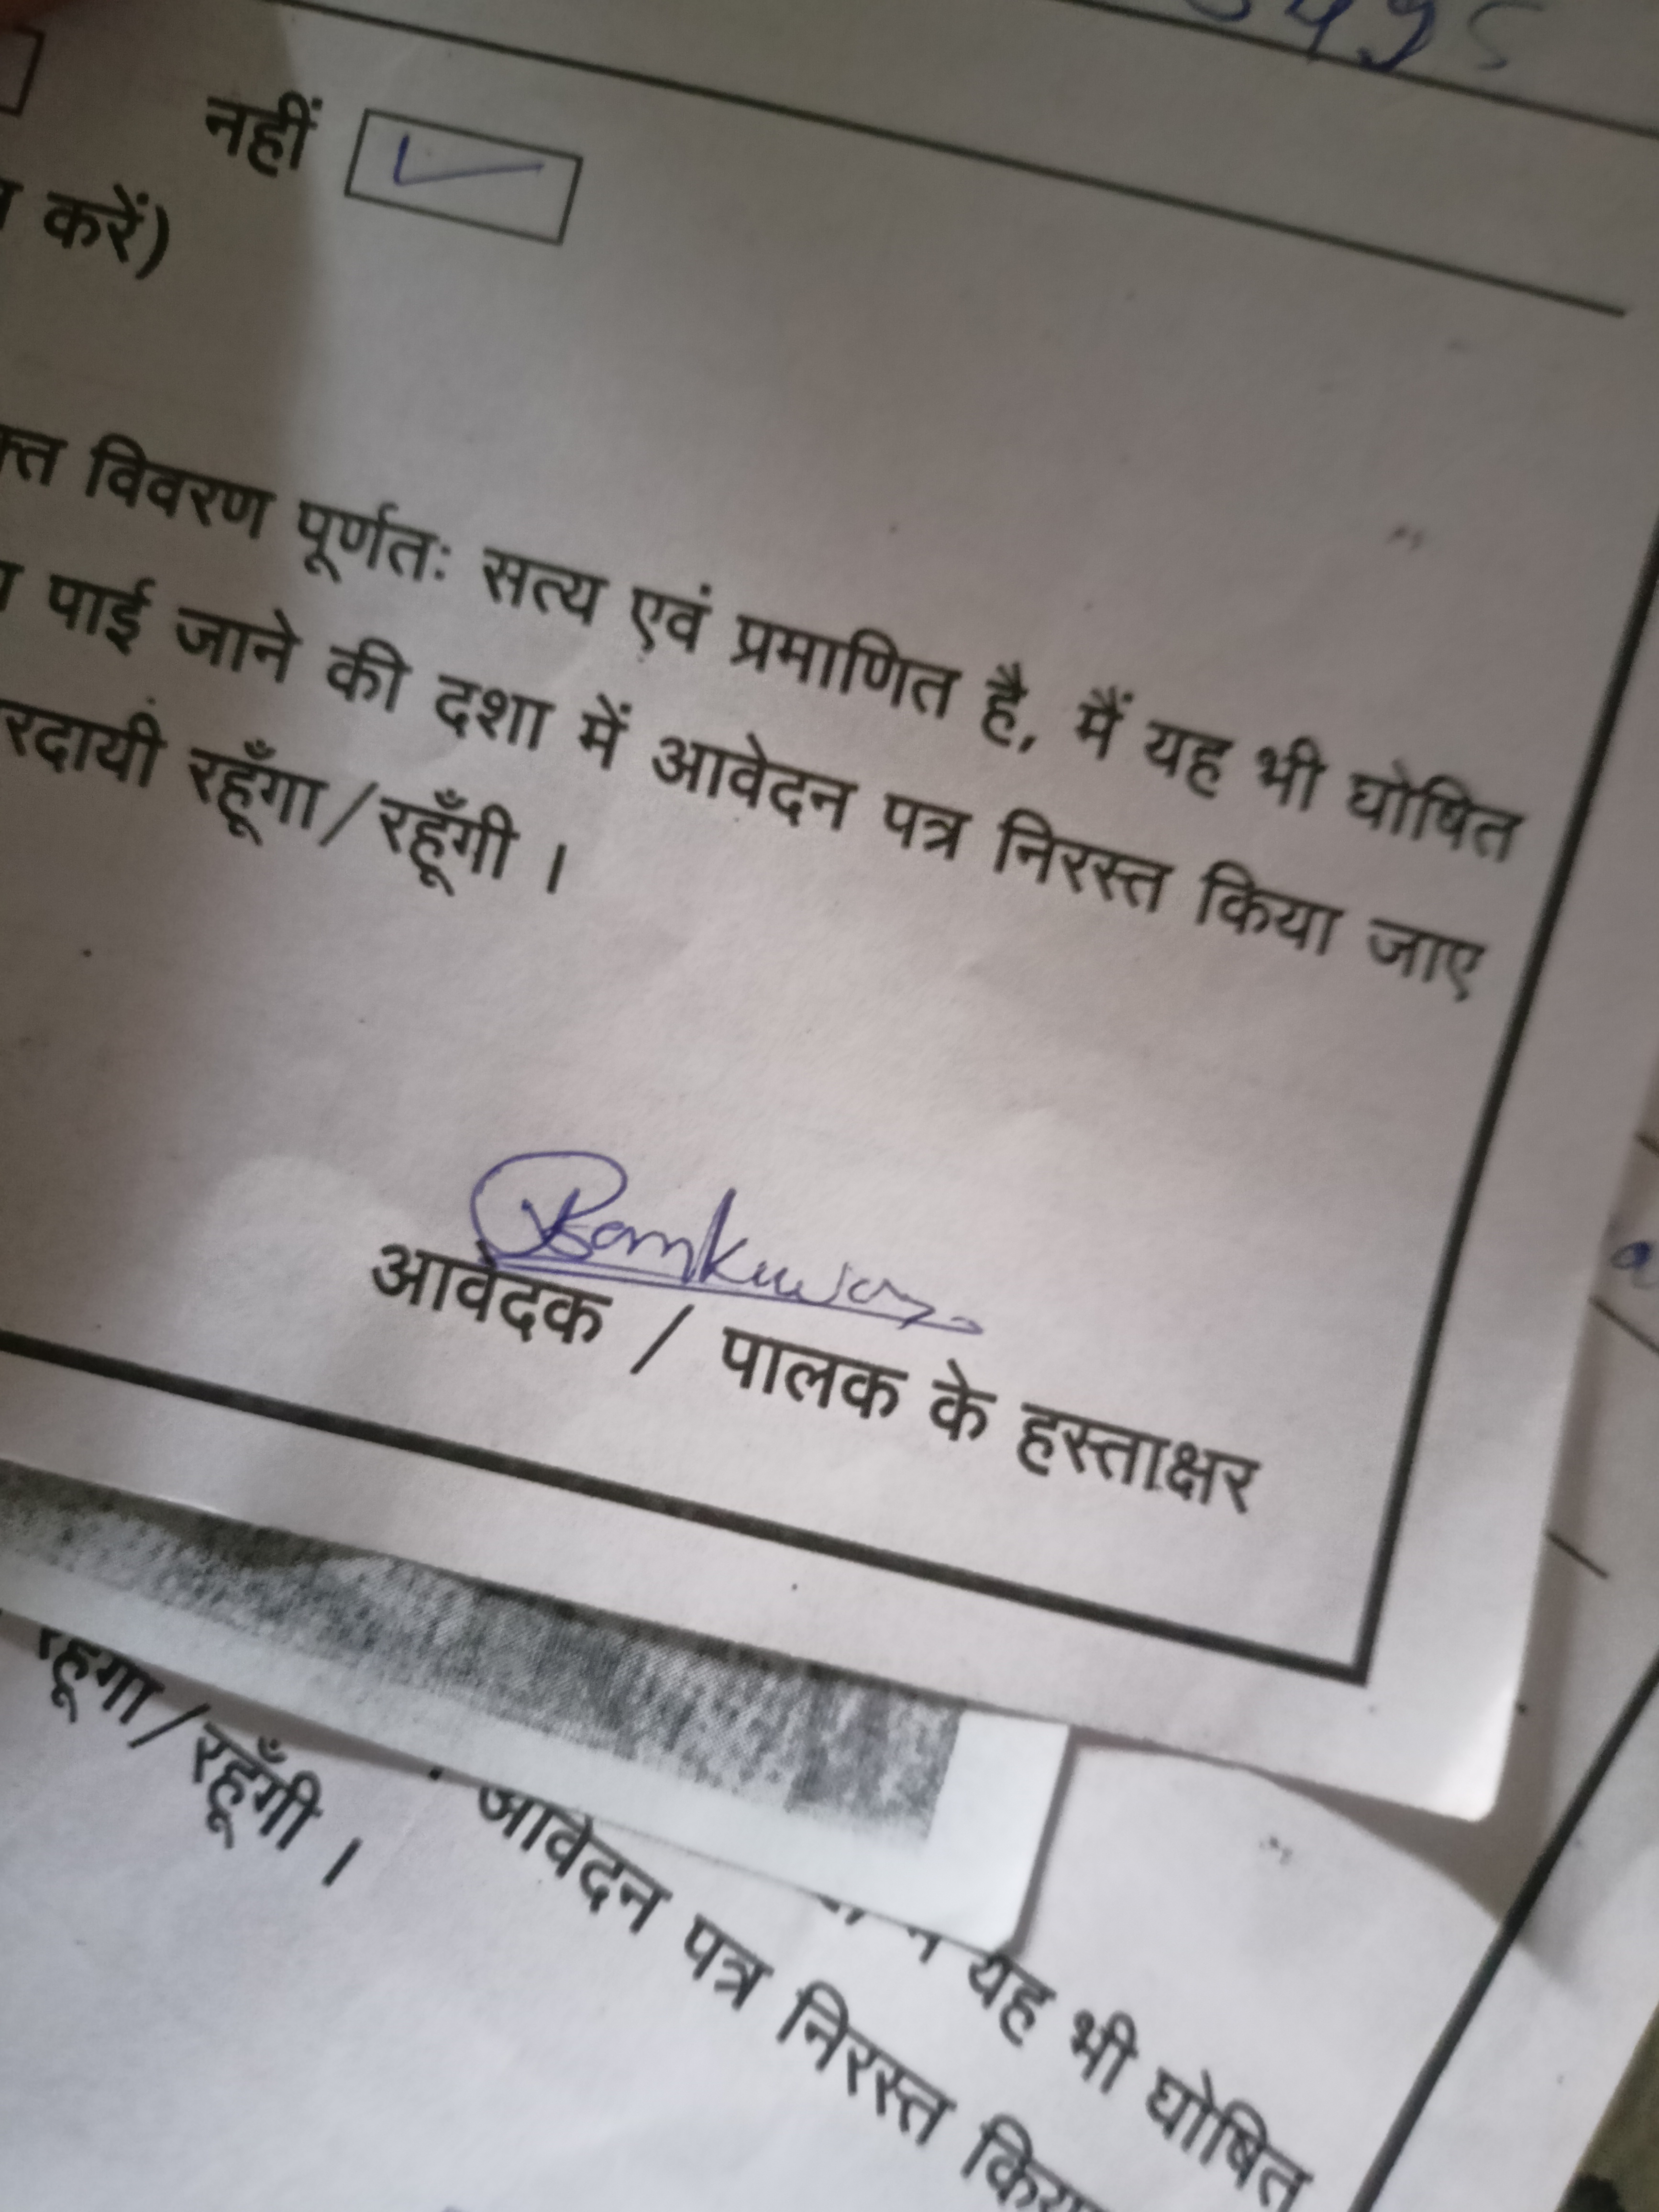 495
नहीं
करें)
विवरण पूर्णतः सत्य एवं प्रमाणित है, मैं यह भी घोषित
पाई जाने की दशा में आवेदन पत्र निरस्त किया जाए
रदायी रहूँगा/रहूँगी ।
आवेदक / पालक के हस्ताक्षर
यह भी घोषित
आवेदन पत्र निरस्त
रहूँगा/रहूँगी ।